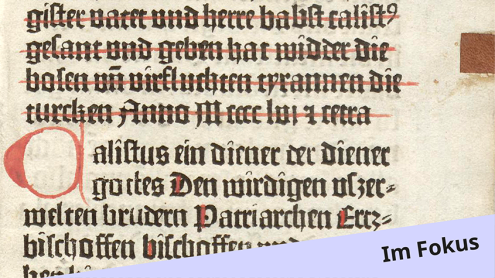 gister vater vnd herre babst calist⁹
gesant vnd geben hat widder die
bosen vn̄ virfluchten tyrannen die
turcken Anno M cccc lvi ⁊ cetra
Calistus ein diener der diener
gottes Den wirdigen vszer⸗
welten brudern Patriarchen Ertz⸗
bischoffen bischoffen vnd
Im Fokus